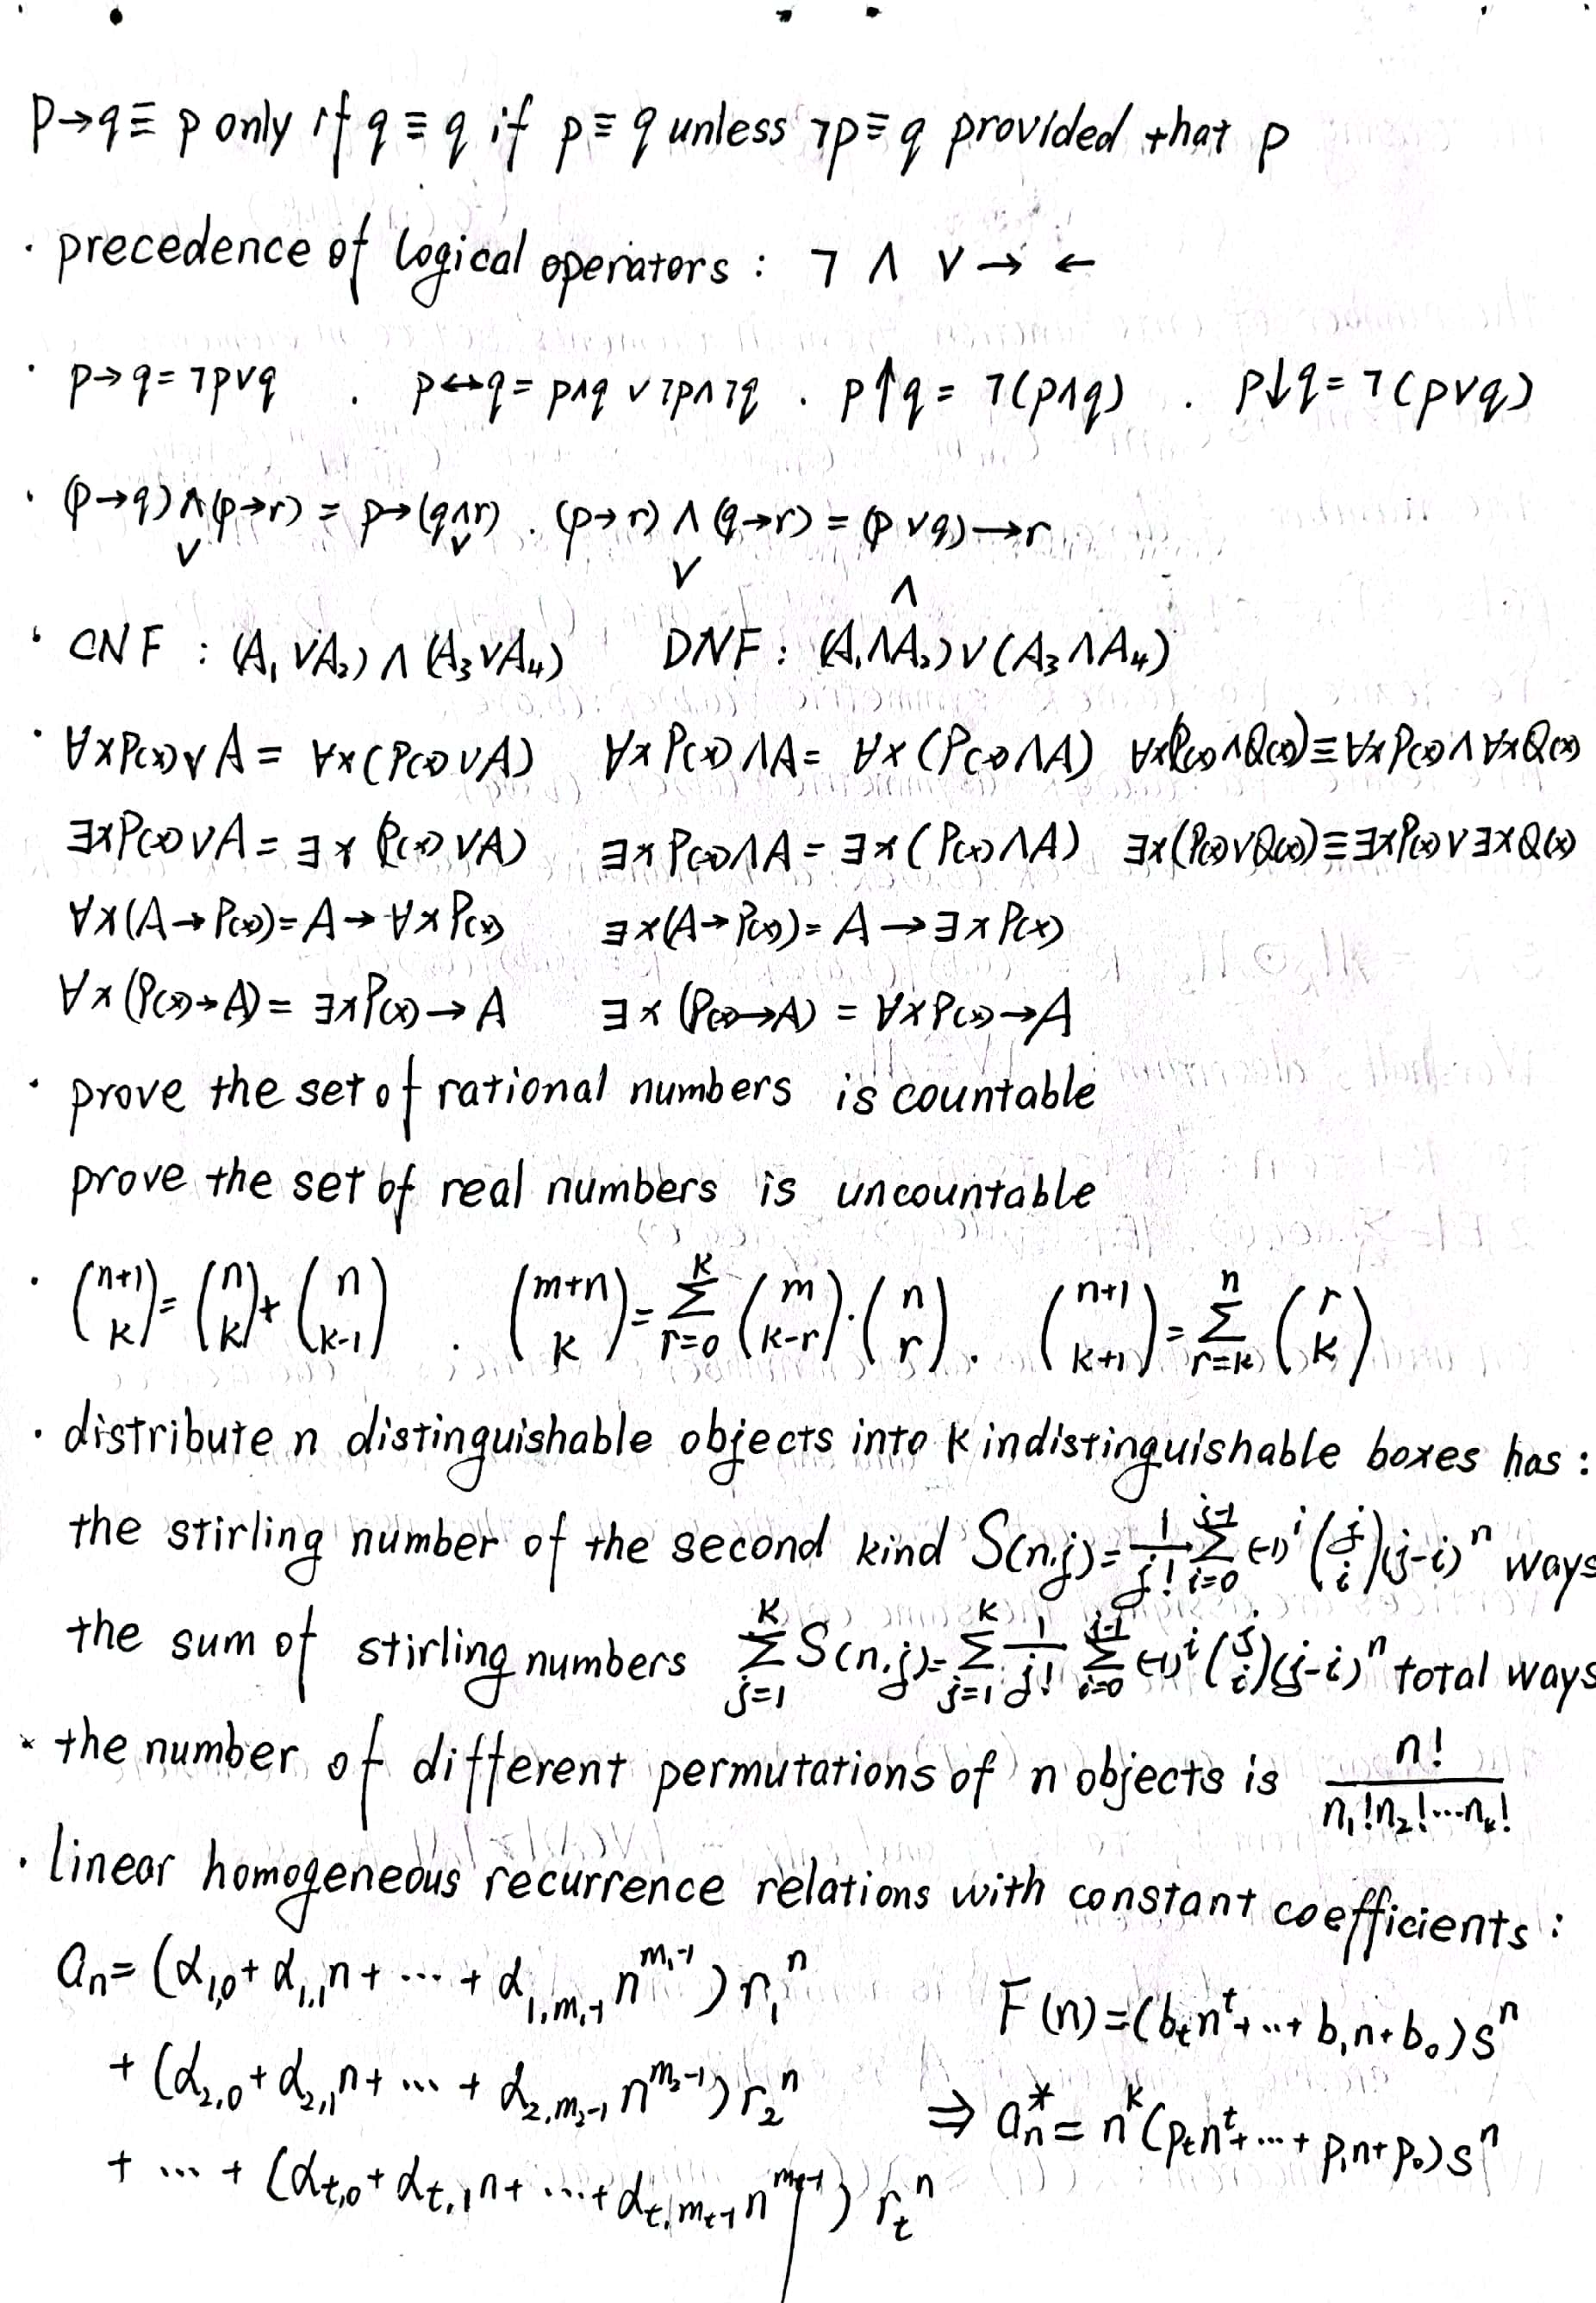 p→q ≡ p only if q ≡ q if p ≡ q unless ¬p ≡ q provided that p
· precedence of logical operators : ¬ ∧ ∨ → ←
· p→q = ¬p∨q . p↔q = p∧q ∨ ¬p∧¬q . p↑q = ¬(p∧q) . p↓q = ¬(p∨q)
· (p→q)∧(p→r) = p→(q∧r) . (p→r)∧(q→r) = (p∨q)→r
∨ ∨ ∨ ∧
· CNF : (A₁∨A₂)∧(A₃∨A₄) DNF : (A₁∧A₂)∨(A₃∧A₄)
· ∀xP(x)∨A = ∀x(P(x)∨A) ∀xP(x)∧A = ∀x(P(x)∧A) ∀x(P(x)∧Q(x)) ≡ ∀xP(x)∧∀xQ(x)
∃xP(x)∨A = ∃x(P(x)∨A) ∃xP(x)∧A = ∃x(P(x)∧A) ∃x(P(x)∨Q(x)) ≡ ∃xP(x)∨∃xQ(x)
∀x(A→P(x)) = A→∀xP(x) ∃x(A→P(x)) = A→∃xP(x)
∀x(P(x)→A) = ∃xP(x)→A ∃x(P(x)→A) = ∀xP(x)→A
· prove the set of rational numbers is countable
prove the set of real numbers is uncountable
· \binom{n+1}{k} = \binom{n}{k} + \binom{n}{k-1} . \binom{m+n}{k} = \sum_{r=0}^{k} \binom{m}{k-r}·\binom{n}{r} . \binom{n+1}{k+1} = \sum_{r=k}^{n} \binom{r}{k}
· distribute n distinguishable objects into k indistinguishable boxes has :
the stirling number of the second kind S(n,j) = \frac{1}{j!} \sum_{i=0}^{j-1} (-1)^i \binom{j}{i} (j-i)^n ways
the sum of stirling numbers \sum_{j=1}^{k} S(n,j) = \sum_{j=1}^{k} \frac{1}{j!} \sum_{i=0}^{j-1} (-1)^i \binom{j}{i} (j-i)^n total ways
· the number of different permutations of n objects is \frac{n!}{n_1! n_2! ··· n_k!}
· linear homogeneous recurrence relations with constant coefficients :
a_n = (α_{1,0} + α_{1,1}n + ··· + α_{1,m_1-1} n^{m_1-1}) r_1^n F(n) = (b_t n^t + ··· + b_1 n + b_0) s^n
+ (α_{2,0} + α_{2,1}n + ··· + α_{2,m_2-1} n^{m_2-1}) r_2^n ⇒ a_n^* = n^k (p_t n^t + ··· + p_1 n + p_0) s^n
+ ··· + (α_{t,0} + α_{t,1}n + ··· + α_{t,m_t-1} n^{m_t-1}) r_t^n